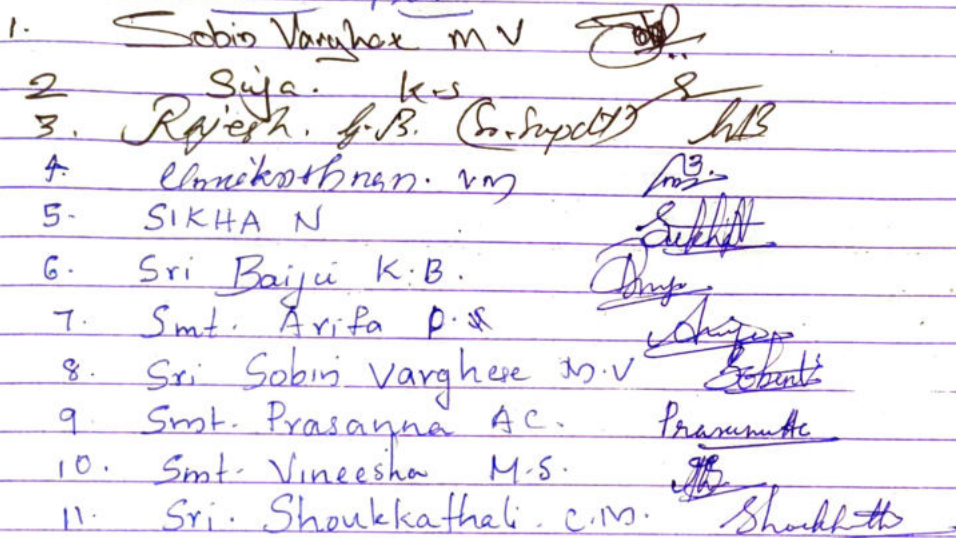 1. Sobin Varghese M V
2 Suja. K.S
3. Rajesh. G.B. (Sr. Supdt)
4. Unnikrishnan. V M
5. SIKHA N
6. Sri Baiju K.B.
7. Smt. Arifa P.
8. Sri Sobin Varghese M.V
9 Smt. Prasanna A C. Prasanna Ac
10. Smt. Vineesha M.S.
11. Sri. Shoukkathali. C.M.